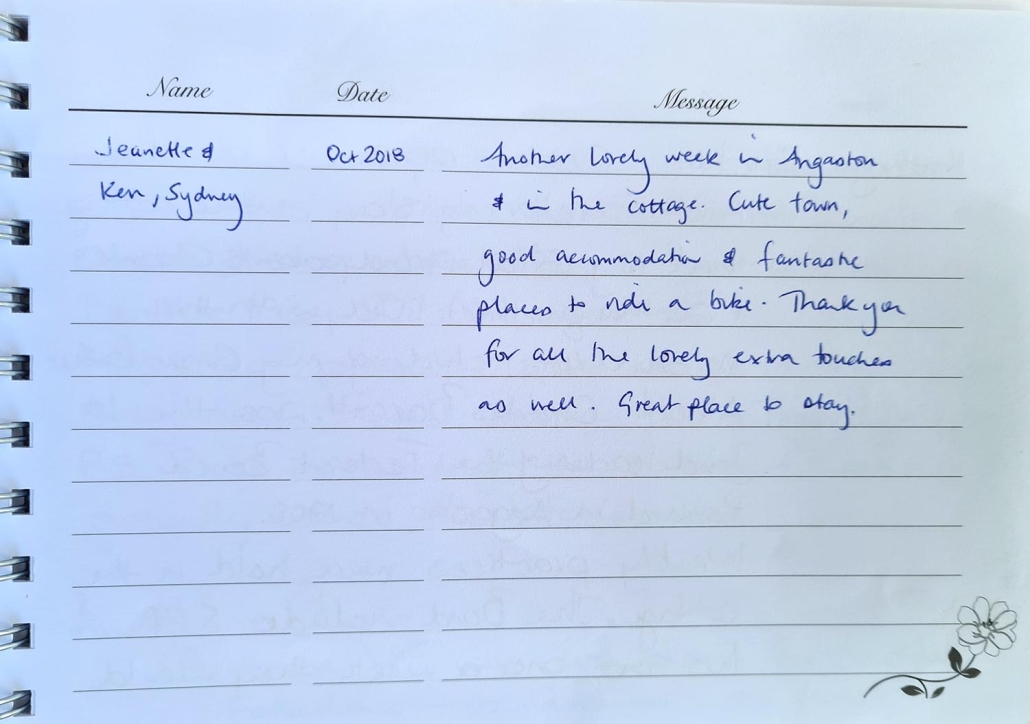 Name Date Message
Jeanette & Oct 2018 Another lovely week in Angaston
Ken, Sydney & in the cottage. Cute town,
good accommodation & fantastic
places to ride a bike. Thank you
for all the lovely extra touches
as well. Great place to stay.